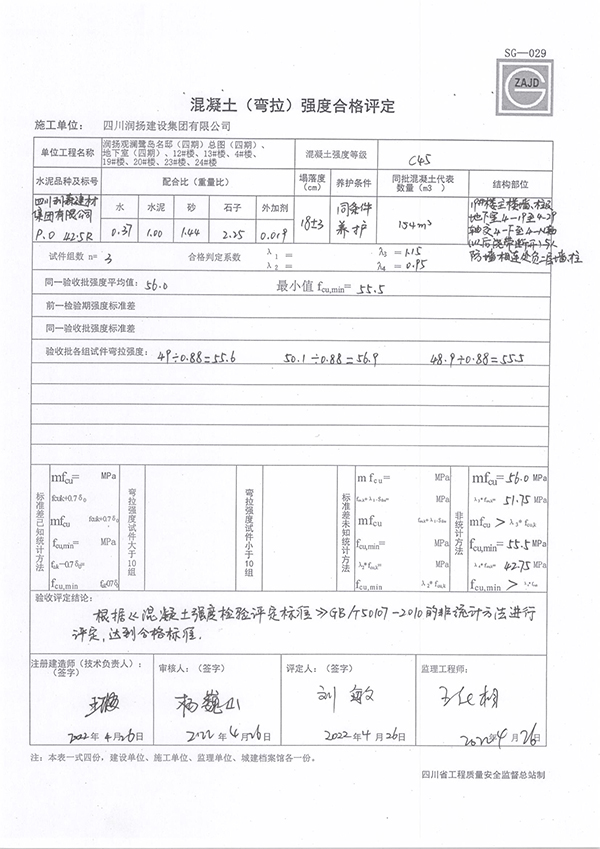 SG—029
ZAJD
混凝土（弯拉）强度合格评定
施工单位： 四川润扬建设集团有限公司
单位工程名称
润扬观澜鹭岛名邸（四期）总图（四期）、
地下室（四期）、12#楼、13#楼、4#楼、
19#楼、20#楼、23#楼、24#楼
混凝土强度等级
C45
水泥品种及标号
配合比（重量比）
塌落度
(cm)
养护条件
同批混凝土代表
数量（m3 ）
结构部位
集团有限公司
P.O 42.5R
水 水泥 砂 石子 外加剂
0.37 1.00 1.44 2.25 0.019
18±3
同条件
养护
154m³
地下室4-19至4-29
试件组数 n= 3
合格判定系数
λ1 =
λ2 =
λ3 =1.15
λ4 =0.95
同一验收批强度平均值： 56.0
最小值 fcu,min= 55.5
前一检验期强度标准差
同一验收批强度标准差
验收批各组试件弯拉强度： 49÷0.88=55.6 50.1÷0.88=56.9 48.9÷0.88=55.5
标准差已知统计方法
mfcu= MPa
fcuk+0.7δ0
mfcu fcuk+0.7δ0
fcu,min= MPa
fcuk-0.7δ0=
fcu,min
弯拉强度试件大于10组
弯拉强度试件小于10组
标准差未知统计方法
mfcu= MPa
MPa
mfcu
fcu,min= MPa
MPa
fcu,min λ2*fcu,k
非统计方法
mfcu= 56.0 MPa
λ3*fcu,k= 51.75 MPa
mfcu > λ3*fcu,k
fcu,min= 55.5 MPa
λ4*fcu,k= 42.75 MPa
fcu,min >
验收评定结论：
根据《混凝土强度检验评定标准》GB/T50107-2010的非统计方法进行
评定，达到合格标准.
注册建造师（技术负责人）：
（签字）
2022年4月26日
审核人：（签字）
杨巍山
2022年4月26日
评定人：（签字）
刘敏
2022年4月26日
监理工程师：
2022年4月26日
注：本表一式四份，建设单位、施工单位、监理单位、城建档案馆各一份。
四川省工程质量安全监督总站制